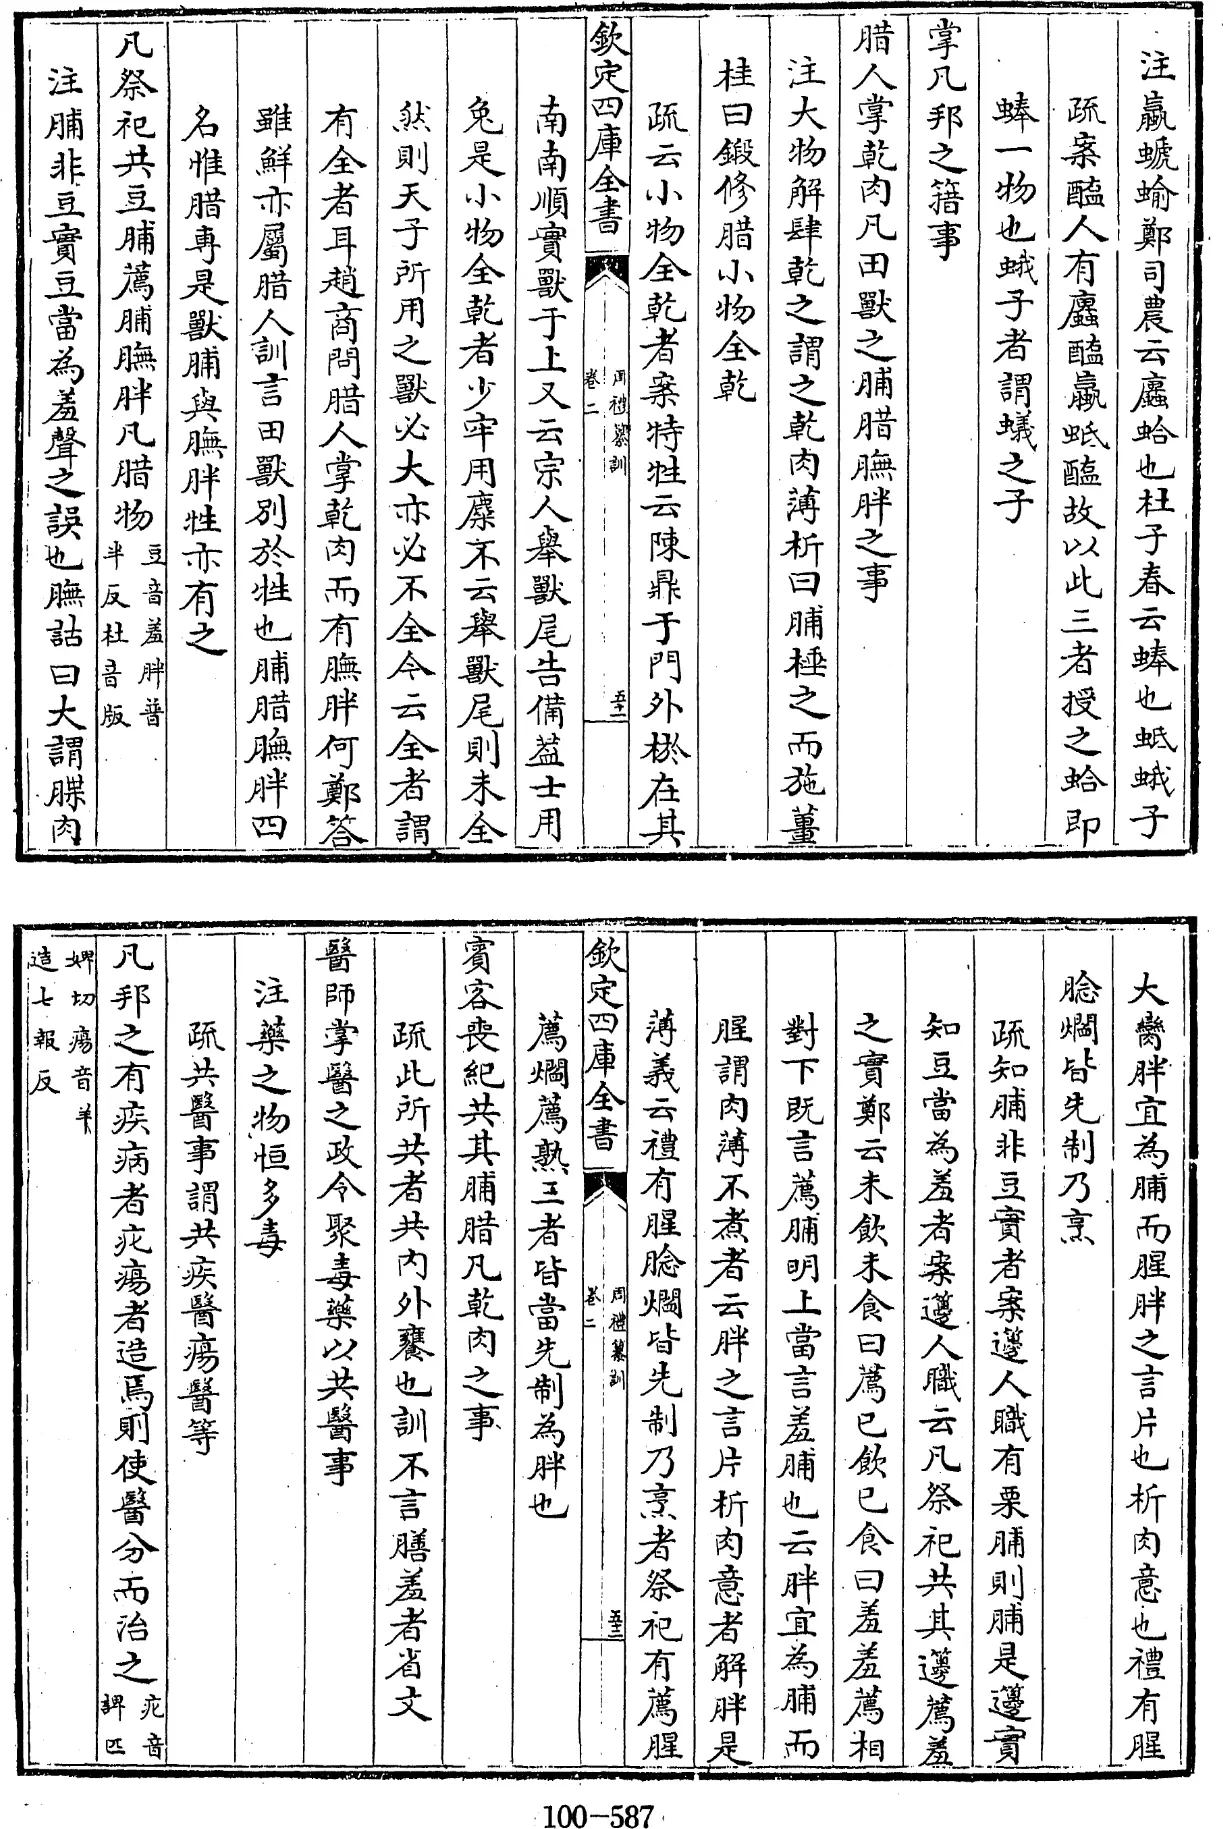 注蠃螔蝓鄭司農云蠯蛤也杜子春云蜯也蚳蛾子
疏案醢人有蠯醢蠃蚳醢故以此三者授之蛤即
蜯一物也蛾子者謂蟻之子
掌凡邦之簎事
腊人掌乾肉凡田獸之脯腊膴胖之事
注大物解肆乾之謂之乾肉薄析曰脯棰之而施薑
桂曰鍛修腊小物全乾
疏云小物全乾者案特牲云陳鼎于門外棜在其
欽定四庫全書
周禮纂訓
卷二
五十二
南南順實獸于上又云宗人舉獸尾告備葢士用
兔是小物全乾者少牢用麋不云舉獸尾則未全
然則天子所用之獸必大亦必不全今云全者謂
有全者耳趙商問腊人掌乾肉而有膴胖何鄭答
雖鮮亦屬腊人訓言田獸別於牲也脯腊膴胖四
名惟腊專是獸脯與膴胖牲亦有之
凡祭祀共豆脯薦脯膴胖凡腊物豆音羞胖普
半反杜音版
注脯非豆實豆當為羞聲之誤也膴詁曰大謂䐑肉
大臠胖宜為脯而腥胖之言片也析肉意也禮有腥
腍爓皆先制乃烹
疏知脯非豆實者案籩人職有栗脯則脯是籩實
知豆當為羞者案籩人職云凡祭祀共其籩薦羞
之實鄭云未飲未食曰薦已飲已食曰羞羞薦相
對下既言薦脯明上當言羞脯也云胖宜為脯而
腥謂肉薄不煮者云胖之言片析肉意者解胖是
薄義云禮有腥腍爓皆先制乃烹者祭祀有薦腥
欽定四庫全書
周禮纂訓
卷二
五十三
薦爓薦熟三者皆當先制為胖也
賓客喪紀共其脯腊凡乾肉之事
疏此所共者共內外饔也訓不言膳羞者省文
醫師掌醫之政令聚毒藥以共醫事
注藥之物恒多毒
疏共醫事謂共疾醫瘍醫等
凡邦之有疾病者疕瘍者造焉則使醫分而治之疕音
譐匹
婢切瘍音羊
造七報反
100-587